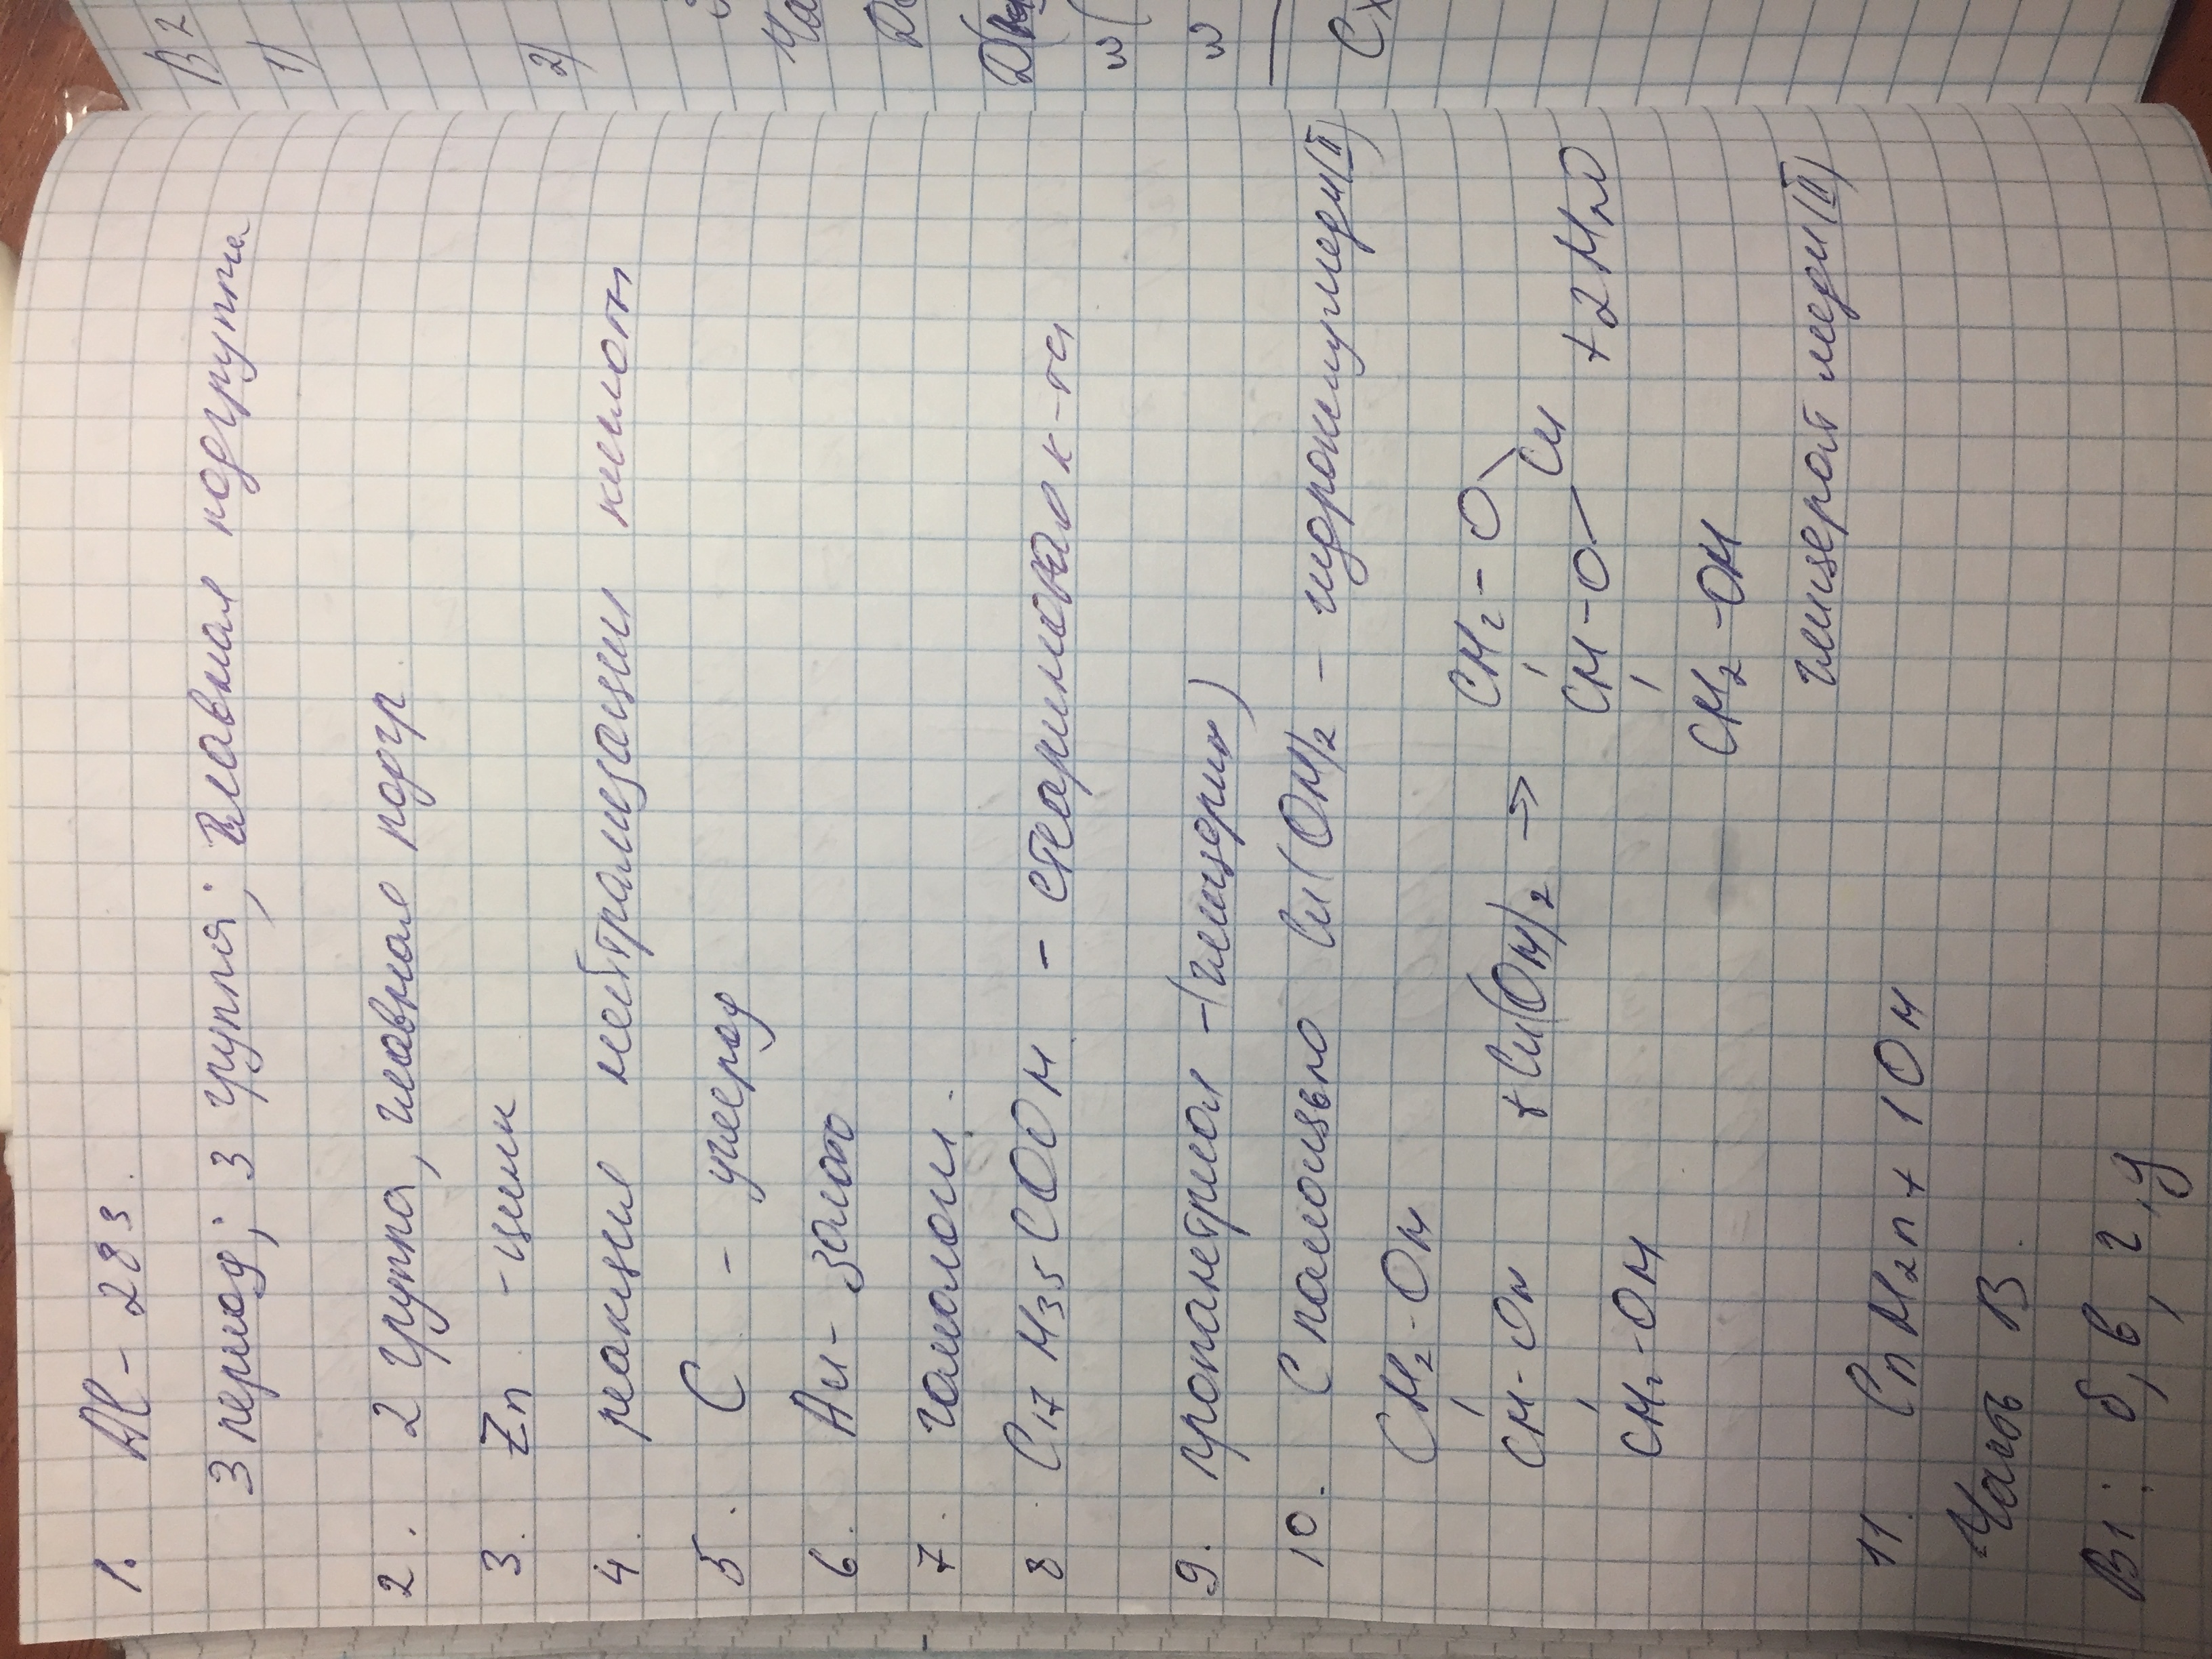 1. Al - 2 8 3
3 период; 3 группа; главная подгруппа
2. 2 группа, главная подгр
3. Zn - цинк
4. реакция нейтрализации кислоты
5. C - углерод
6. Au - золото
7. гомологи.
8 C17H35COOH - стеариновая к-та
9. пропантриол - (глицерин)
10. С помощью Cu(OH)2 - гидроксид меди(II)
CH2-OH CH2-O
CH-OH + Cu(OH)2 → CH-O Cu + 2H2O
CH2-OH CH2-OH
глицерат меди(II)
11. CnH2n+1OH
Часть В
В1: б, в, г, д
В2
1)
2)